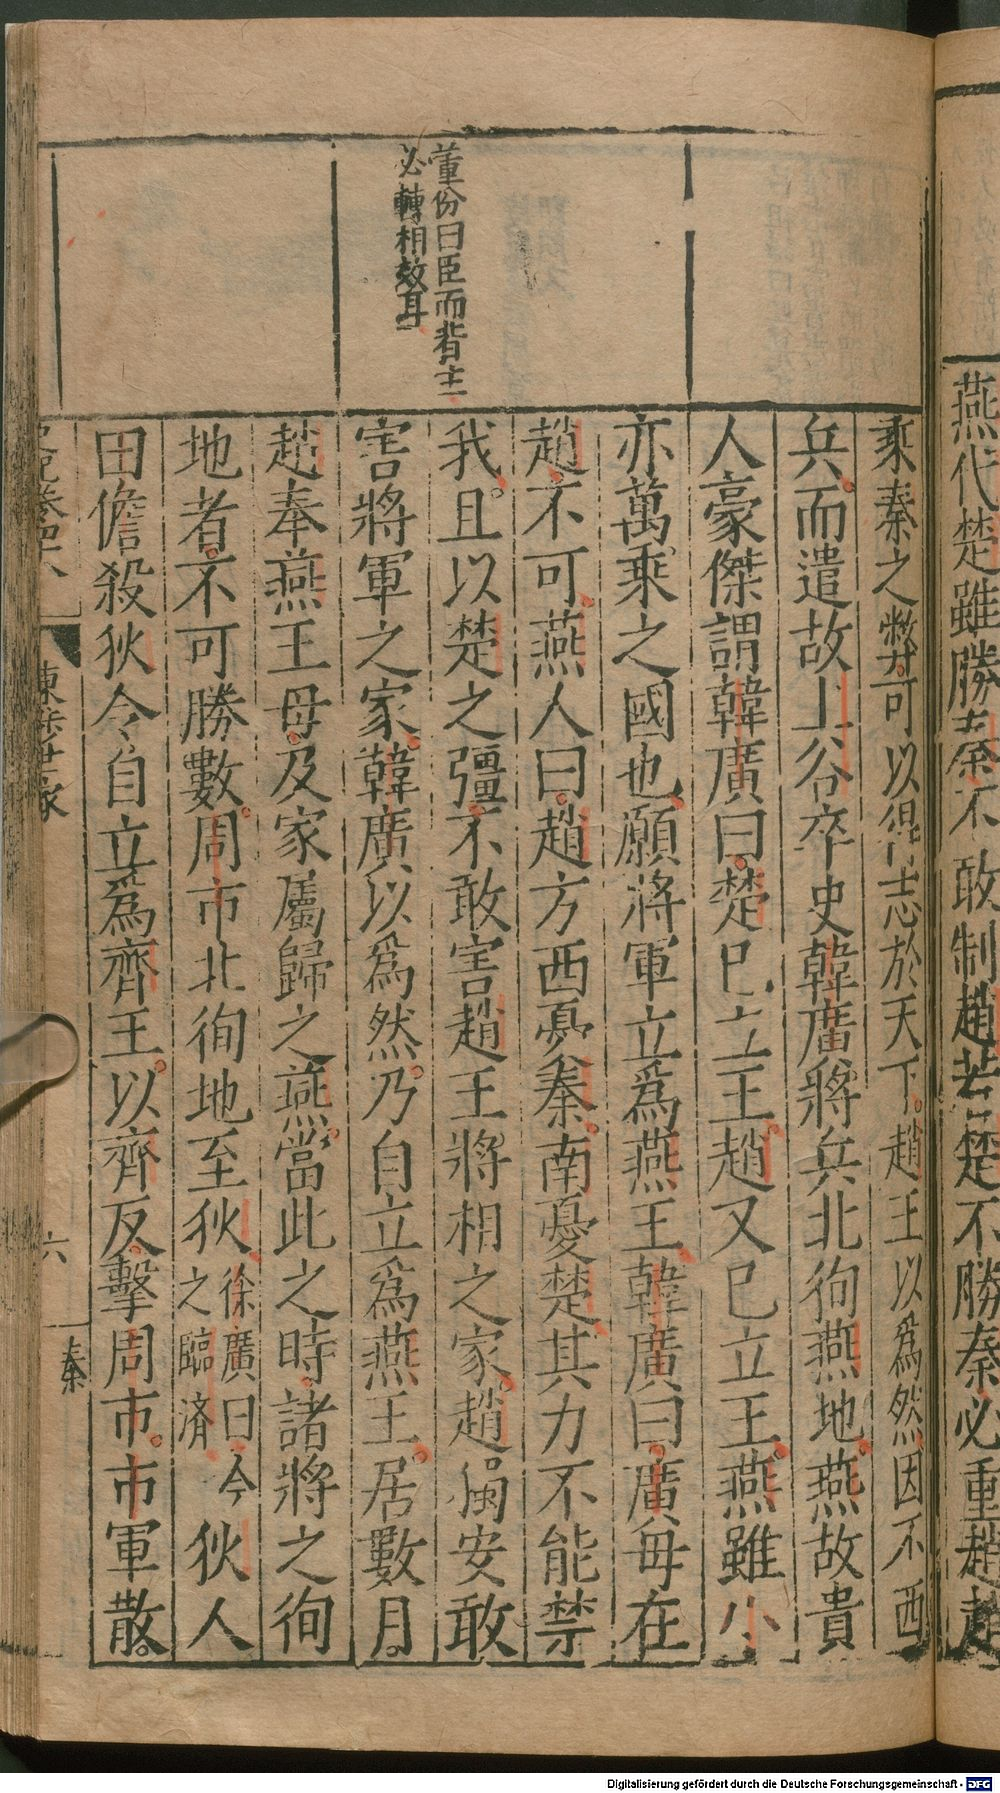 燕代楚雖勝秦不敢制趙若楚不勝秦必重趙趙
乘秦之獘可以得志於天下趙王以爲然因不西
兵而遣故上谷卒史韓廣將兵北徇燕地燕故貴
人豪傑謂韓廣曰楚已立王趙又已立王燕雖小
亦萬乘之國也願將軍立爲燕王韓廣曰廣母在
趙不可燕人曰趙方西憂秦南憂楚其力不能禁
我且以楚之彊不敢害趙王將相之家趙獨安敢
害將軍之家韓廣以爲然乃自立爲燕王居數月
趙奉燕王母及家屬歸之燕當此之時諸將之徇
地者不可勝數周市北徇地至狄徐廣曰今之臨済狄人
田儋殺狄令自立爲齊王以齊反擊周市市軍散
董份曰臣而背主
必轉相效耳
陳涉世家
六
秦
Digitalisierung gefördert durch die Deutsche Forschungsgemeinschaft - DFG